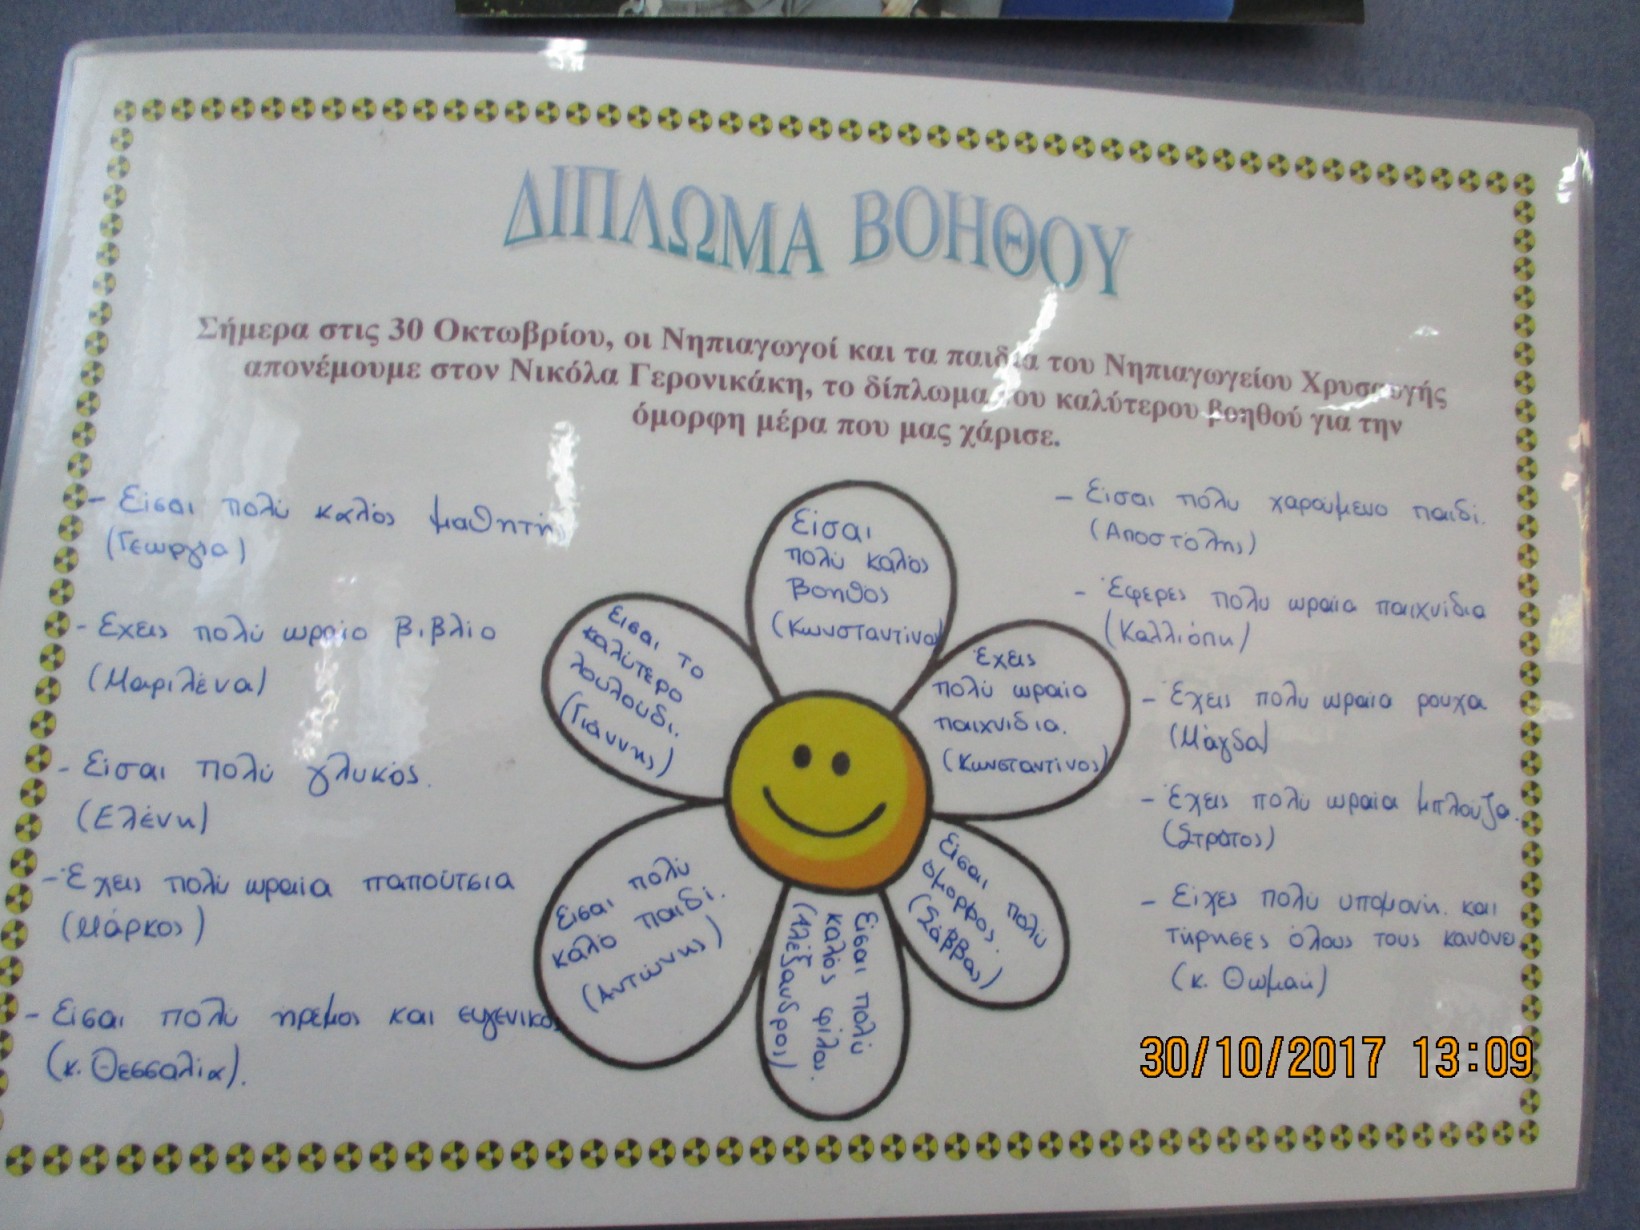 ΔΙΠΛΩΜΑ ΒΟΗΘΟΥ
Σήμερα στις 30 Οκτωβρίου, οι Νηπιαγωγοί και τα παιδιά του Νηπιαγωγείου Χρυσαυγής
απονέμουμε στον Νικόλα Γερονικάκη, το δίπλωμα του καλύτερου βοηθού για την
όμορφη μέρα που μας χάρισε.
- Είσαι πολύ καλός μαθητής
(Γεωργία)
- Εχεις πολύ ωραίο βιβλίο
(Μαριλένα)
- Είσαι πολύ γλυκός.
(Ελένη)
- Έχεις πολύ ωραία παπούτσια
(Μάρκος)
- Είσαι πολύ ήρεμος και ευγενικός
(κ. Θεσσαλία).
Είσαι
πολύ καλός
βοηθός
(Κωνσταντίνα)
Είσαι το
καλύτερο
λουλούδι.
(Γιάννης)
Έχεις
πολύ ωραία
παιχνίδια.
(Κωνσταντίνος)
Είσαι πολύ
καλό παιδί.
(Αντώνης)
Είσαι πολύ
καλός φίλου.
(Αλέξανδρος)
Είσαι πολύ
όμορφος.
(Σάββας)
- Είσαι πολύ χαρούμενο παιδί.
(Αποστόλης)
- Έφερες πολύ ωραία παιχνίδια
(Καλλιόπη)
- Έχεις πολύ ωραία ρούχα
(Μάγδα)
- Έχεις πολύ ωραία μπλούζα.
(Στράτος)
- Είχες πολύ υπομονή. και
τήρησες όλους τους κανόνε
(κ. Θωμαή)
30/10/2017 13:09